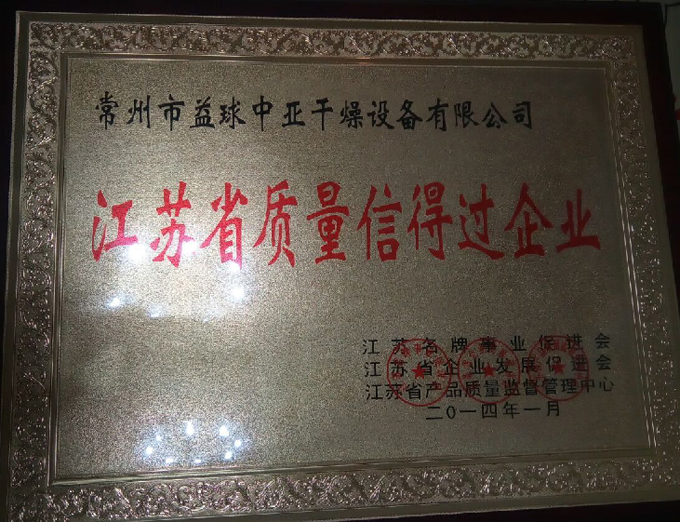 常州市益球中亚干燥设备有限公司
江苏省质量信得过企业
江苏名牌事业促进会
江苏省企业发展促进会
江苏省产品质量监督管理中心
二〇一四年一月